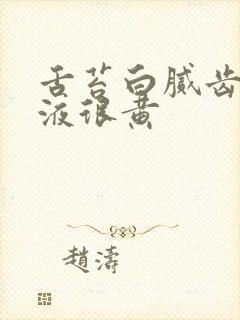 舌苔白腻齿
液很黄
趙濤